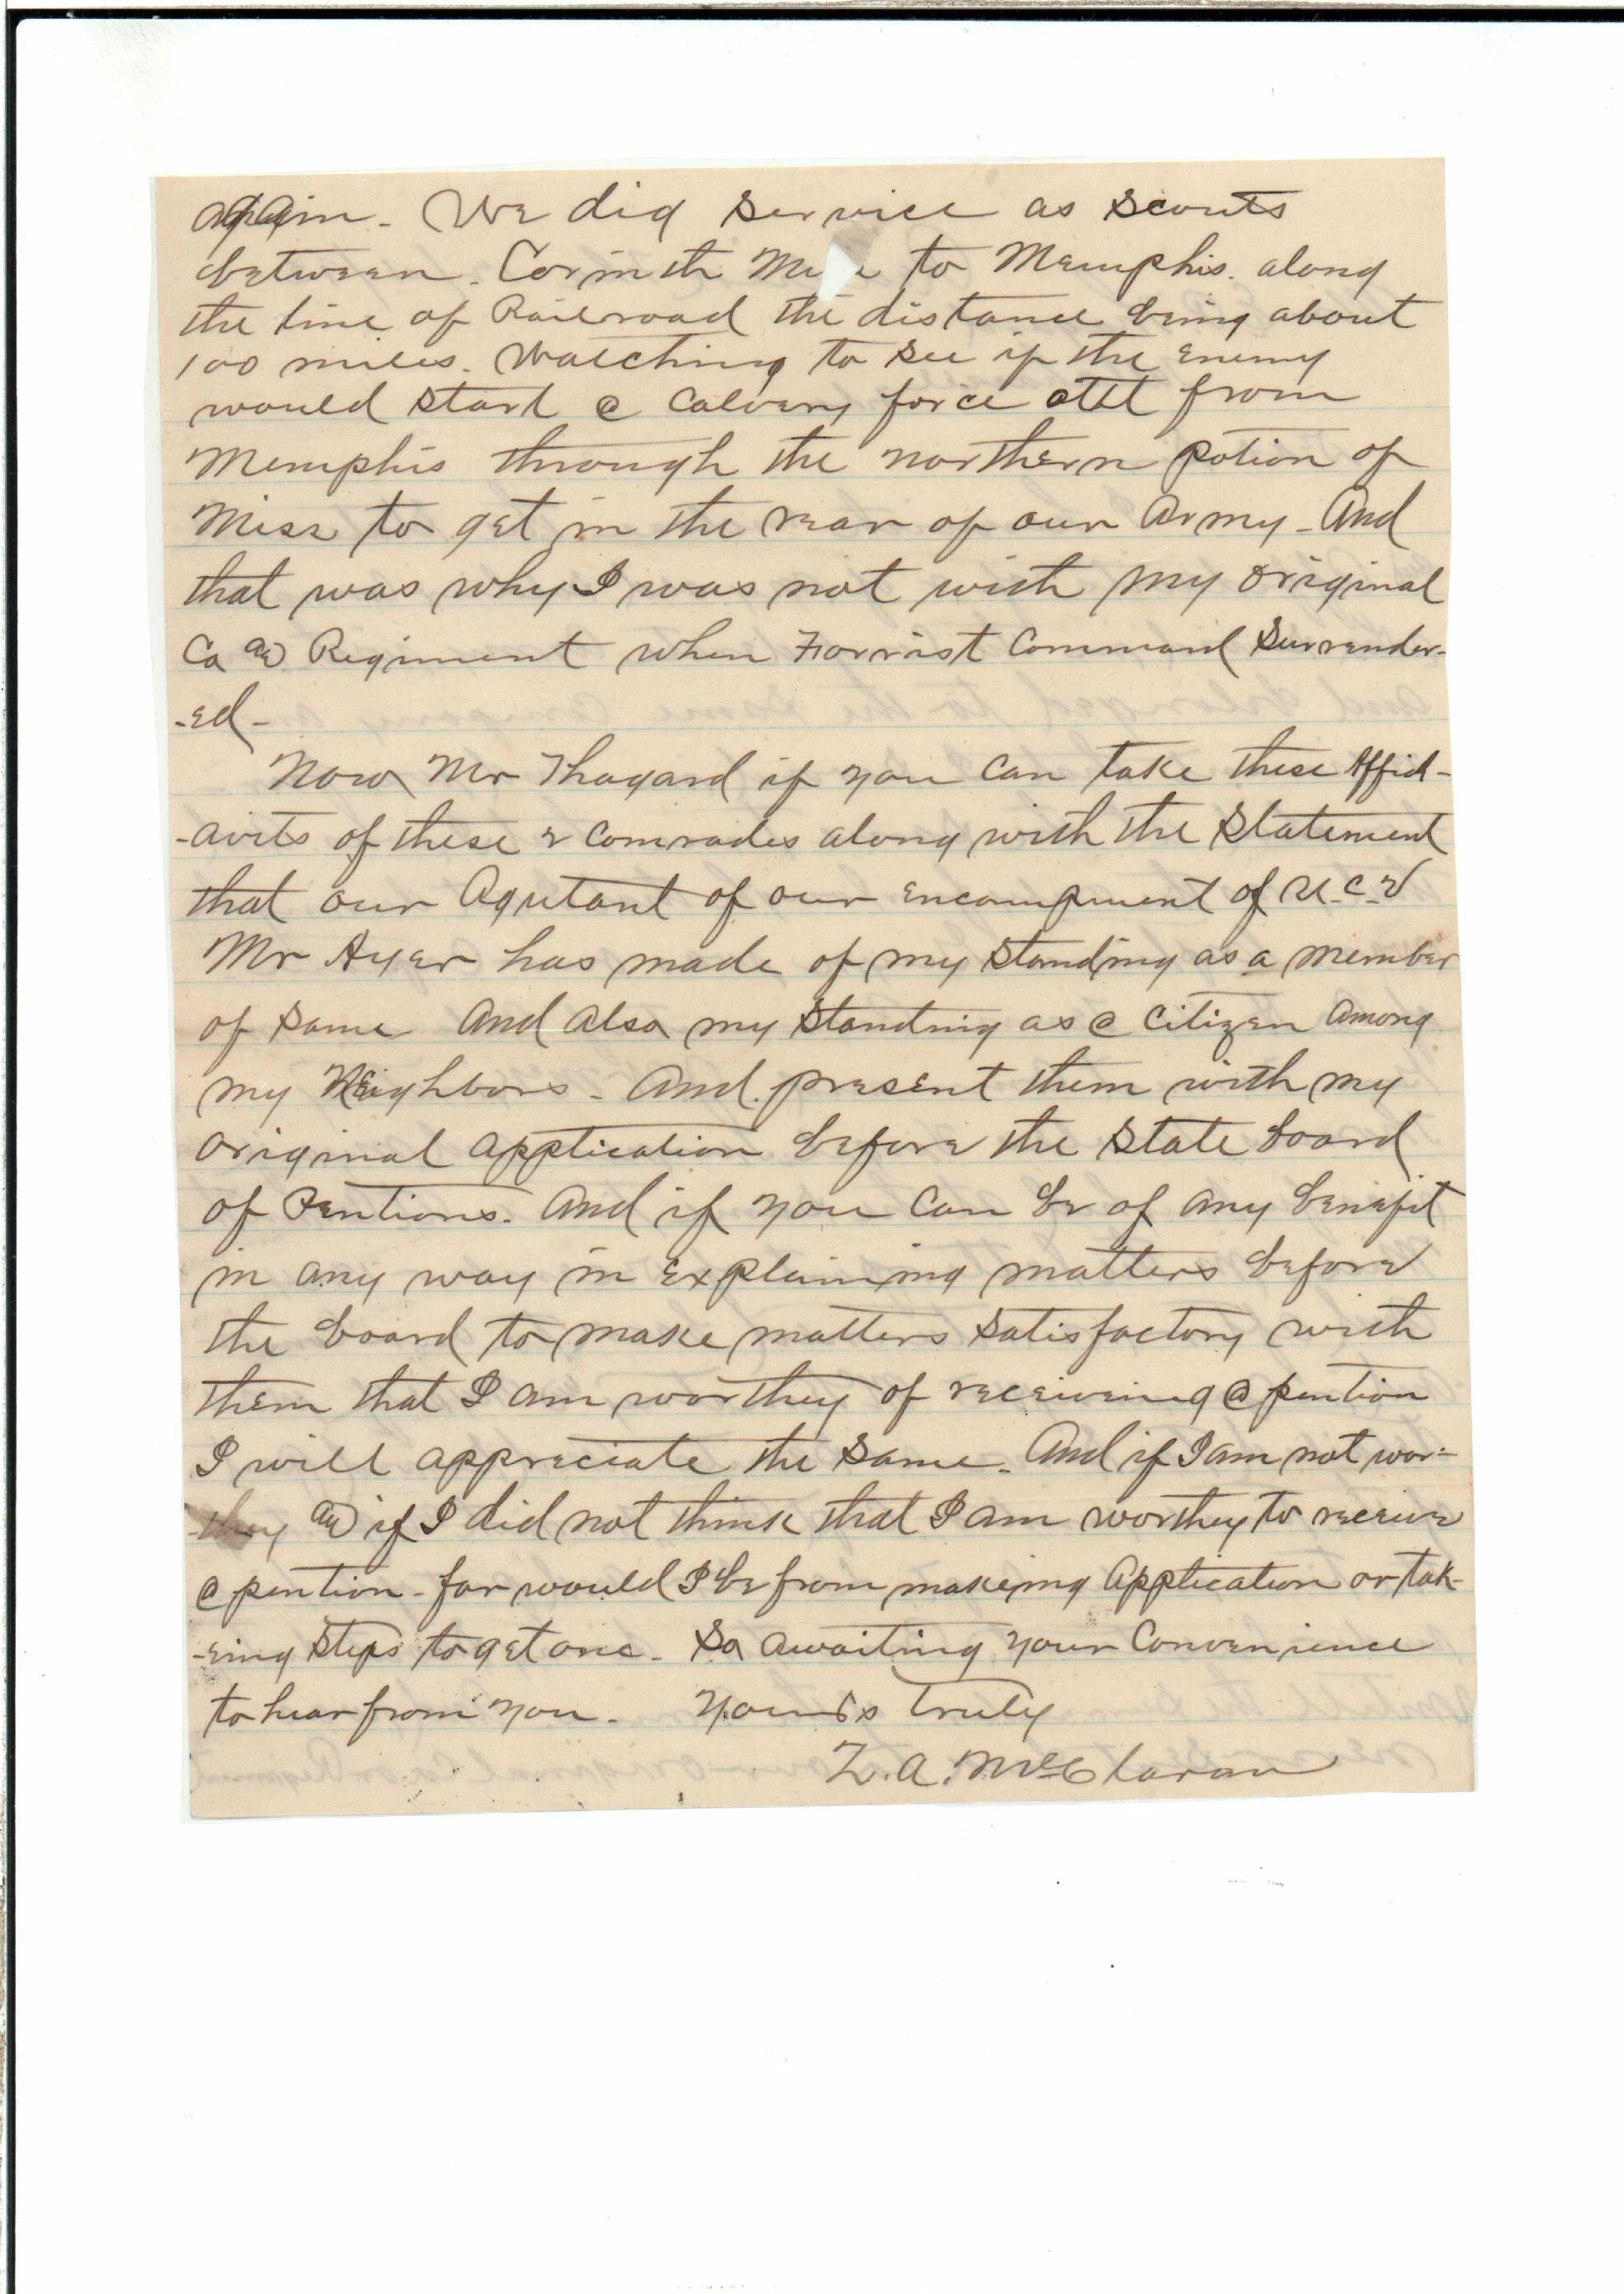 again. We did service as scouts
between. Corinth to Memphis. along
the line of Railroad the distance being about
100 miles. Watching to see if the Enemy
would start a Calvery force from
Memphis through the northern potion of
Miss to get in the rear of our Army - And
that was why I was not with my original
Co & Regiment when Forrist Command Surrender-
-ed -
Now Mr Thagard if you can take these Affid-
-avits of these 2 Comrades along with the Statement
that our Agutant of our encampment of U.C.V
Mr Ayer has made of my standing as a member
of same And also my standing as a Citizen Among
my Neighbors - And. present them with my
original application before the State board
of Pentions. And if you can be of any benefit
in any way in Explaining matters before
the board to make matters satisfactory with
them that I am worthey of receiveing a pention
I will appreciate the same. And if I am not wor-
-they & if I did not think that I am worthey to receive
a pention - far would I be from makeing Application or tak-
-eing steps to get one - So awaiting your Convenience
to hear from you. Yours Truly
Z. A. McClaran